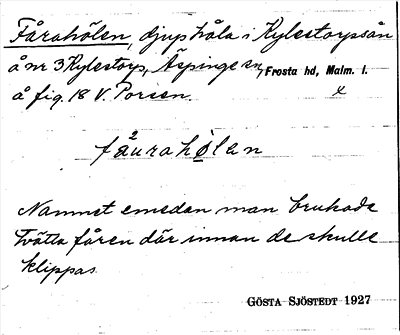 Fårahölen, djup håla i Kylestorpsån
å nr 3 Kylestorp, Äspinge sn, Frosta hd, Malm. l.
å fig. 18 V. Porsen. x
fa²urahølen
Namnet emedan man brukade
tvätta fåren där innan de skulle
klippas.
GÖSTA SJÖSTEDT 1927